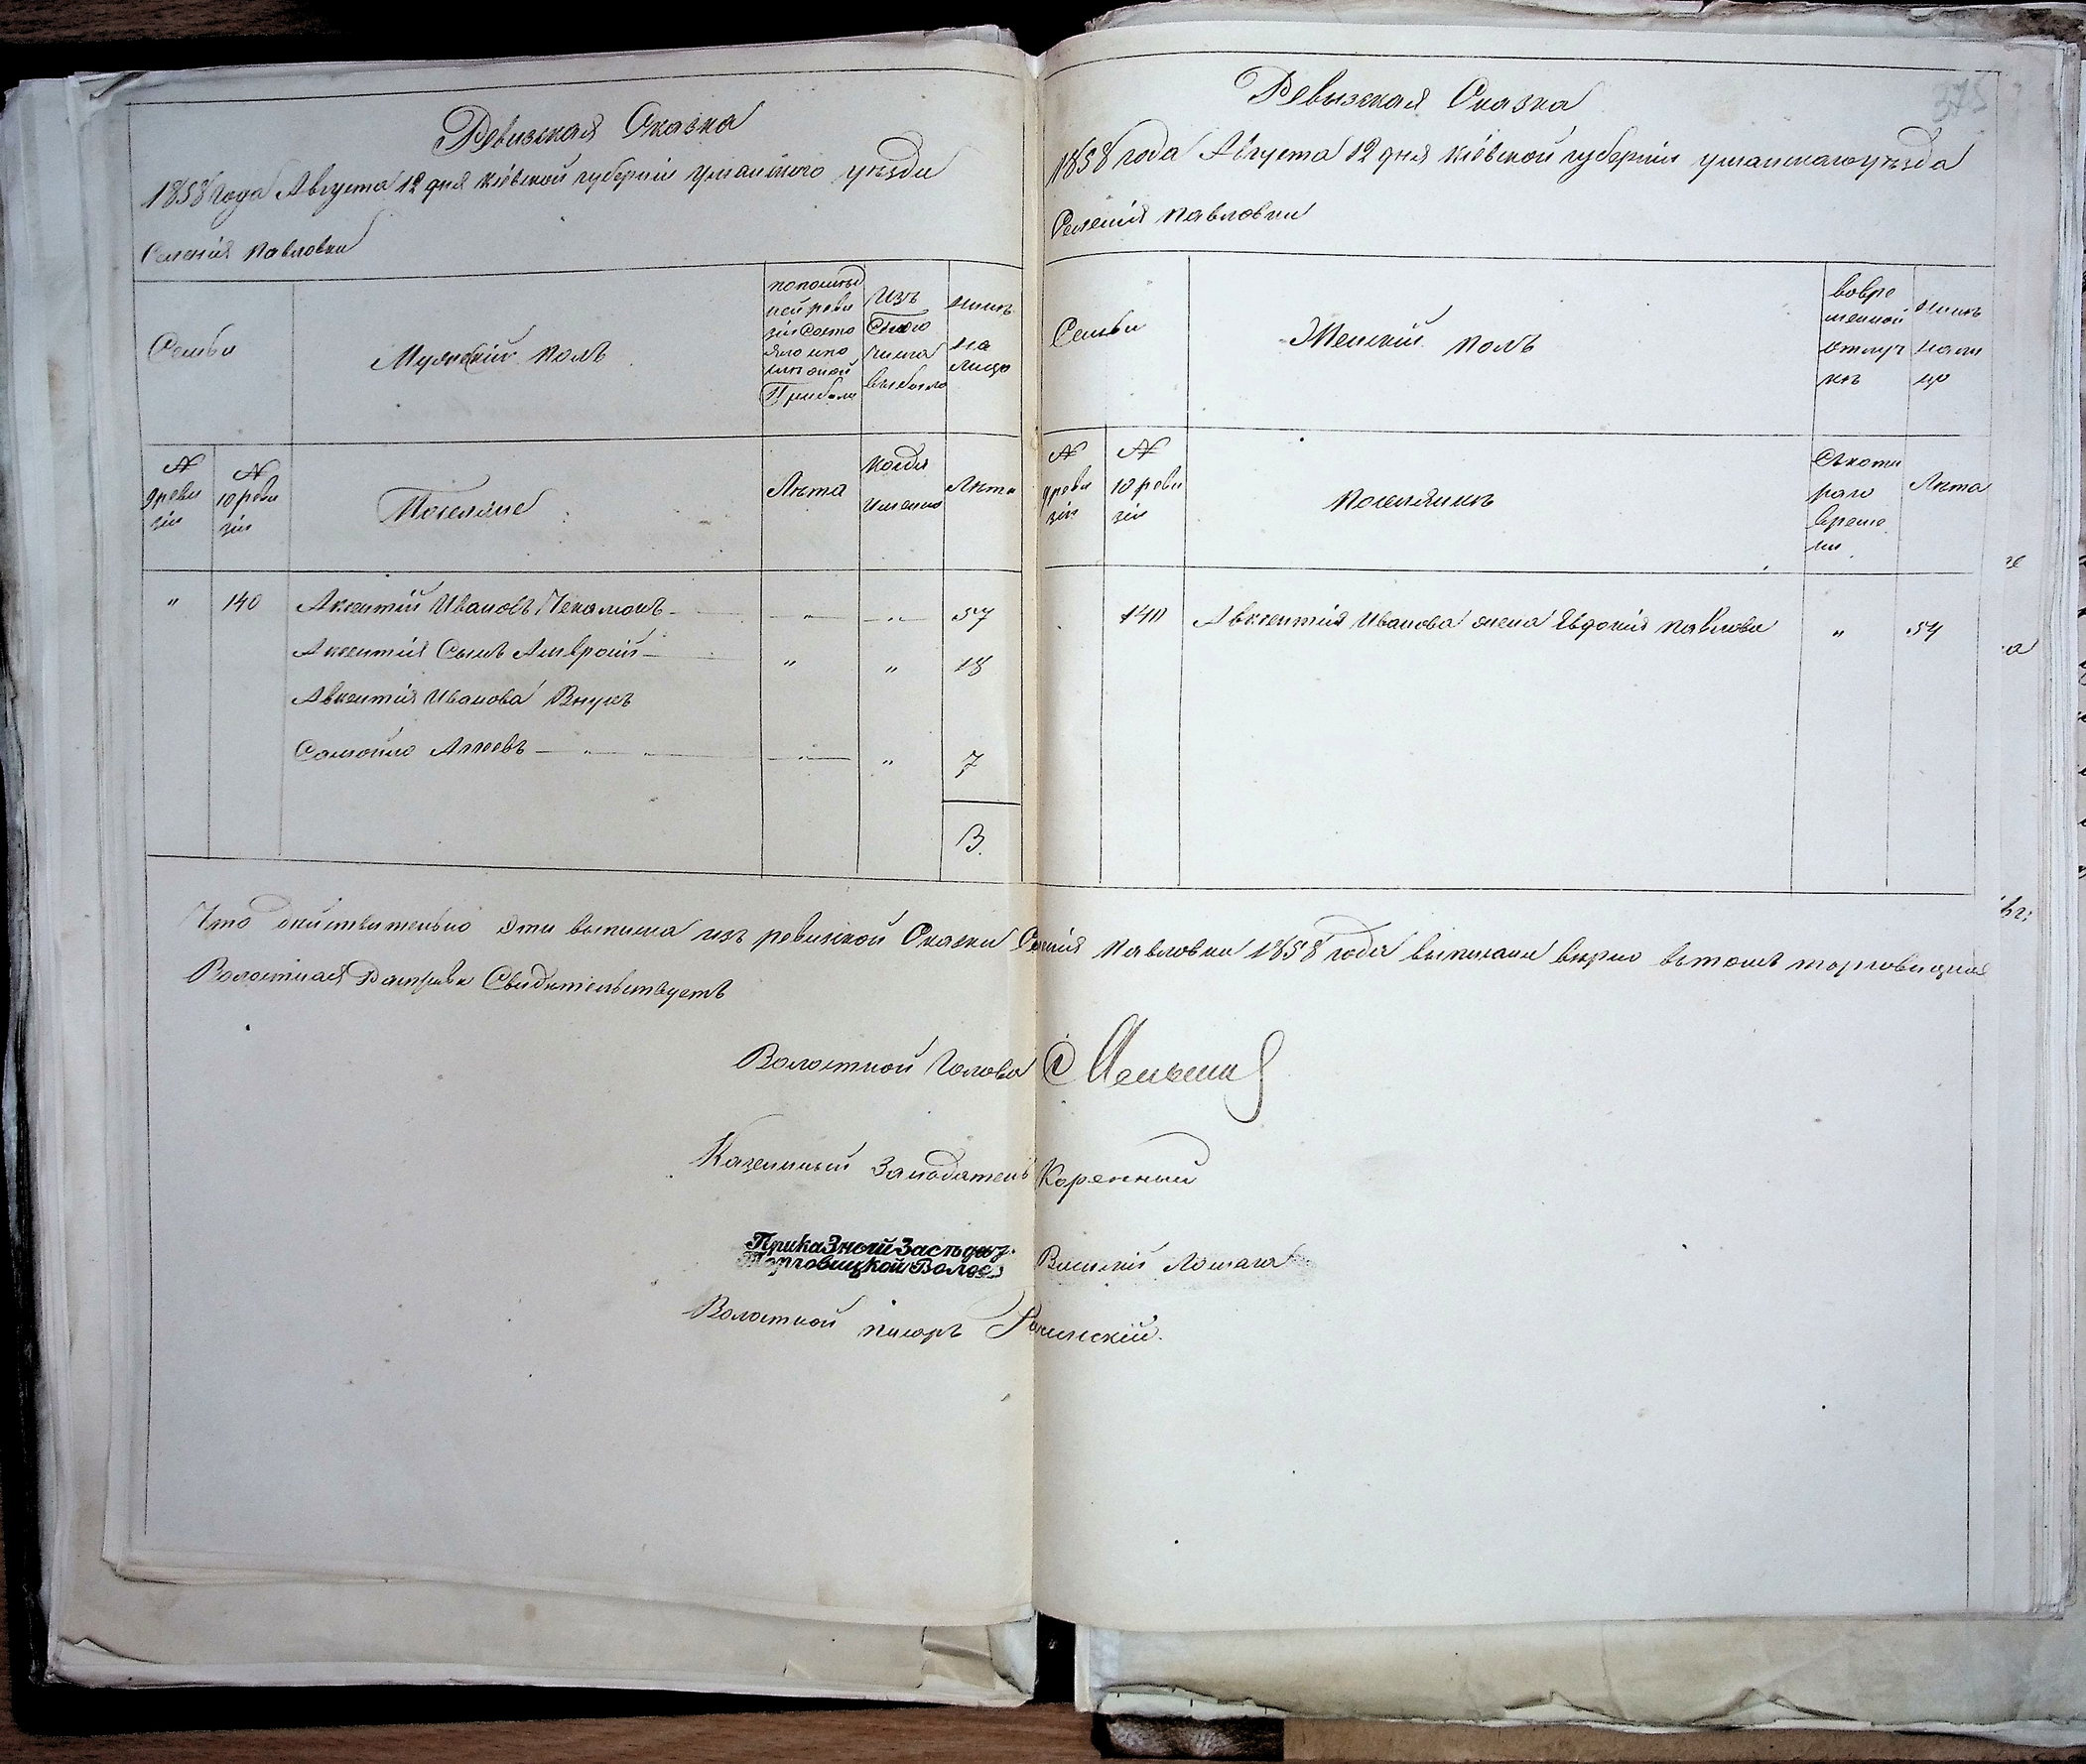 Ревизская Сказка
1858 года Августа 12 дня Кіевской губерніи уманского уезда
Селенія Павловки
Семьи
Мужескій полъ
по послед
ней реви
зіи состо
яло и по
слѣ оной
Прибыло
Изъ
Сего
числа
выбыло
нынѣ
на
лицо
№
9 реви
зіи
№
10 реви
зіи
Поселяне
Лѣта
когда
именно
Лѣта
" 140 Аксентій Ивановъ " " 57
Аксентія Сынъ Амвросій " " 18
Авксентія Иванова Внукъ
Самойло " " 7
3.
375
Ревизская Сказка
1858 года Августа 12 дня Кіевской губерніи уманскаго уезда
Селенія Павловки
Семьи
Женскій полъ
во вре
менной
отлуч
кѣ
нынѣ
на ли
цо
№
9 реви
зіи
№
10 реви
зіи
Поселянкъ
Съ кото
раго
време
ни
Лѣта
140 Авксентія Иванова жена Явдокія Павлова " 54
Что действительно эти выписка изъ ревизской Сказки Селенія Павловки 1858 года выписани верно въ томъ торговицкая
Волостная Росправа Свидѣтельствуетъ
Волостной Голова
Казенный Заседатель Коренный
Приказный Заседат.
Торговицкой Волос.
Василій
Волостной писарь